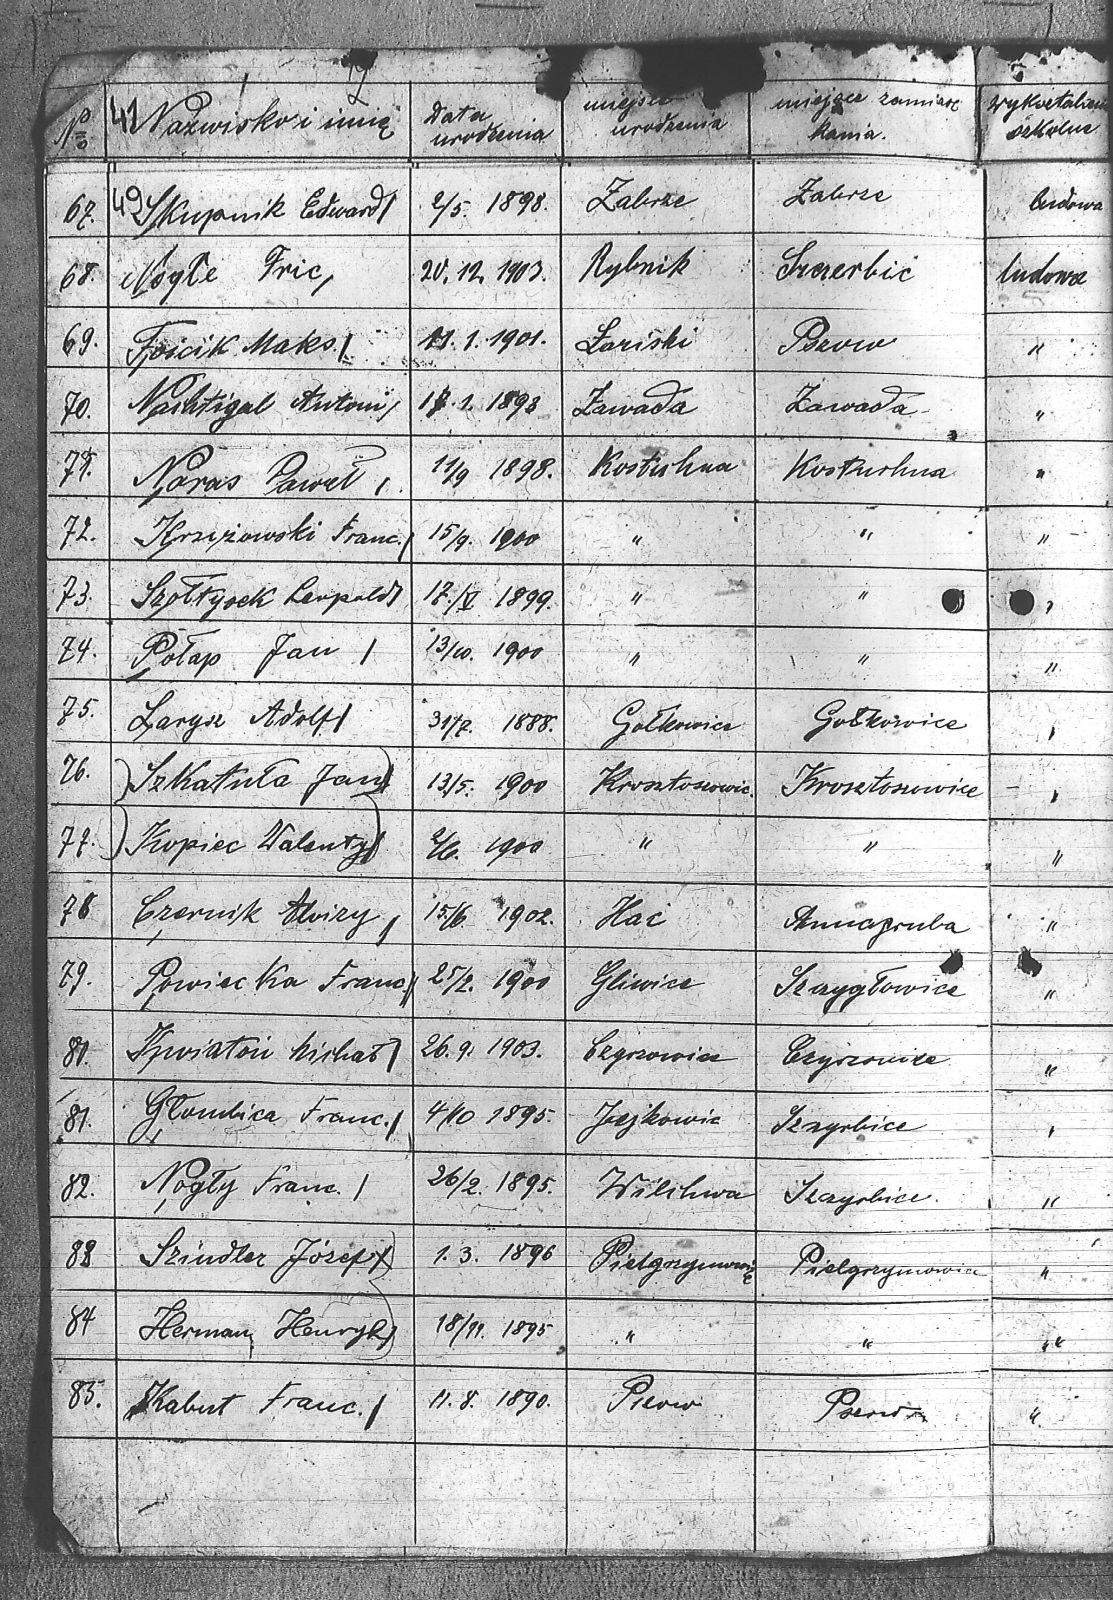 No 42 Nazwisko i imię Data urodzenia miejsce urodzenia miejsce zamieszkania. wykształcenie szkolne
67. 49 Skupnik Edward 2/5. 1898. Zabrze Zabrze ludowa
68. Nogłe Fric, 20.12. 1903. Rybnik Szczerbic ludowa
69. Fojcik Maks. 11.1.1901. Łaziski Pszow "
70. Nachtigal Antoni 17.1.1893 Zawada Zawada "
71. Naras Paweł, 11/9 1898. Kostuhna Kostuhna "
72. Krzyżowski Franc. 15/9. 1900 " " "
73. Szołtysek Leopold 17./V 1899. " " "
74. Połap Jan 13/10. 1900 " " "
75. Larysz Adolf 31/7. 1888. Gołkowice Gołkowice "
76. Szkatuła Jan 13/5. 1900 Krosztoszowic. Krosztoszowice "
77. Kopiec Walenty 2/6. 1900 " " "
78 Czernik Alvizy 15/6 1902. Hać Annagruba "
79. Powiecka Franc. 25/2. 1900 Gliwice Szczygłowice "
80. Kwiatoń Michał 26.9. 1903. Czyrzowice Czyrzowice "
81. Głombica Franc. 4/10 1895. Jejkowic Szczyrbice "
82. Nogły Franc. 26/2. 1895. Wilchwa Szczyrbice. "
83 Szindler Józef 1.3. 1896 Pielgrzymowice Pielgrzymowice "
84 Herman Henryk 18/11. 1895 " " "
85. Kabut Franc. 11.8. 1890. Pszow Pszow "